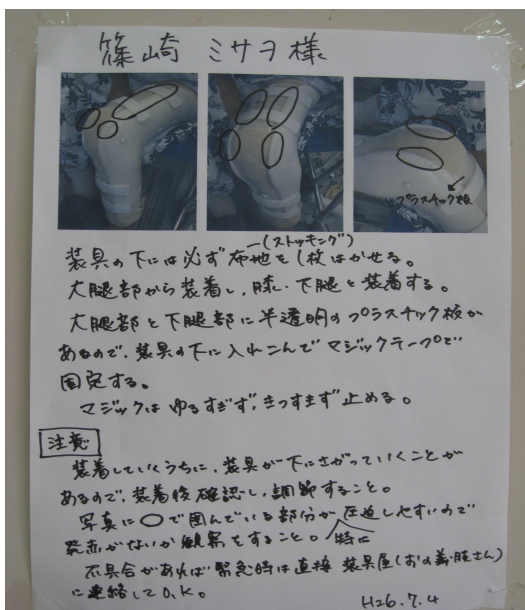 篠崎 ミサヲ 様
プラスチック板
(ストッキング)
装具の下には必ず布地を1枚はかせる。
大腿部から装着し、膝・下腿と装着する。
大腿部と下腿部に半透明のプラスチック板が
あるので、装具の下に入れこんでマジックテープで
固定する。
マジックはゆるすぎず、きつすぎず止める。
注意
装着していくうちに、装具が下にさがっていくことが
あるので、装着後確認し、調節すること。
写真に○で囲んでいる部分が圧迫しやすいので
特に
発赤がないか観察をすること。
不具合があれば緊急時は直接 装具屋(おの義肢さん)
に連絡してO.K。
H26.7.4